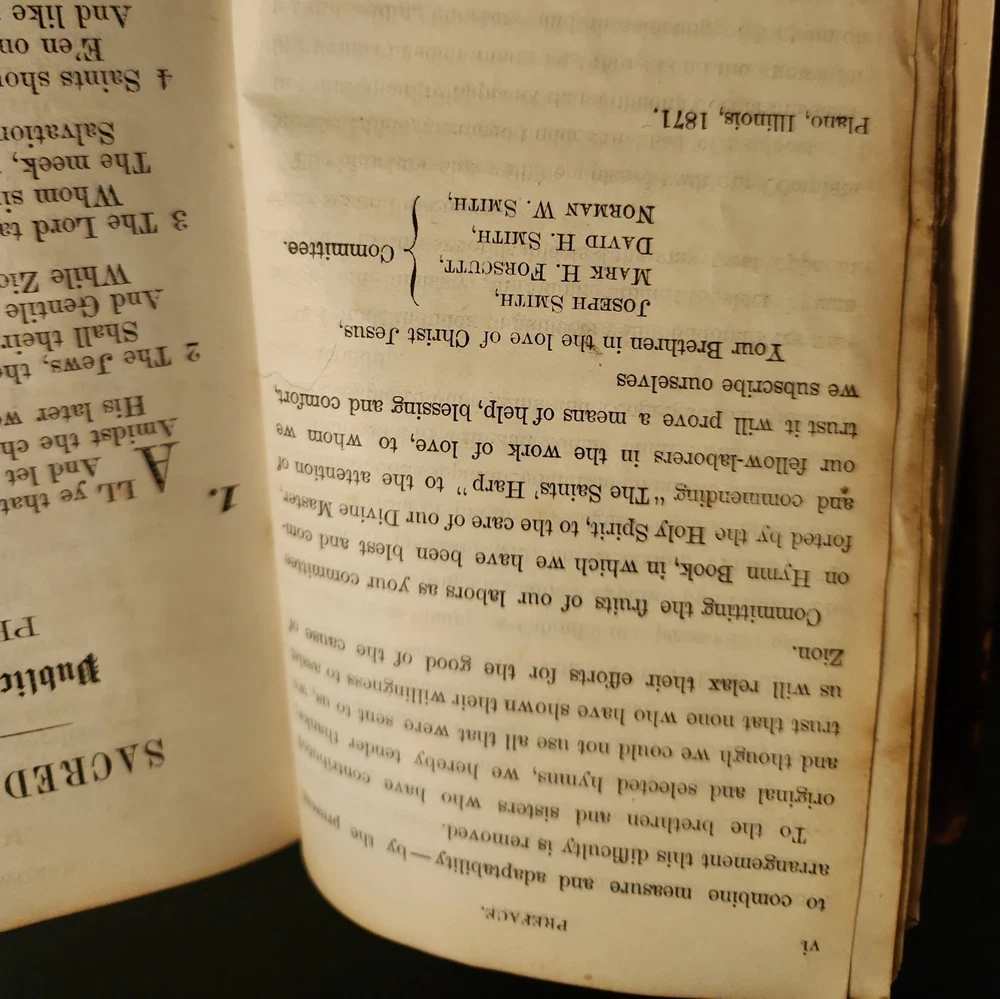 vi
PREFACE.
to combine measure and adaptability—by the present
arrangement this difficulty is removed.
To the brethren and sisters who have contributed
original and selected hymns, we hereby tender thanks,
and though we could not use all that were sent to us, we
trust that none who have shown their willingness to assist
us will relax their efforts for the good of the cause of
Zion.
Committing the fruits of our labors as your committee
on Hymn Book, in which we have been blest and com-
forted by the Holy Spirit, to the care of our Divine Master,
and commending “The Saints’ Harp” to the attention of
our fellow-laborers in the work of love, to whom we
trust it will prove a means of help, blessing and comfort,
we subscribe ourselves
Your Brethren in the love of Christ Jesus,
JOSEPH SMITH,
MARK H. FORSCUTT,
DAVID H. SMITH,
NORMAN W. SMITH,
Committee.
Plano, Illinois, 1871.
SACRED
1.
ALL ye that
And let
Amidst the
His later
2 The Jews, the
Shall their
And Gentile
While
3 The Lord
Whom
The meek,
4 Saints
E’en on
And like